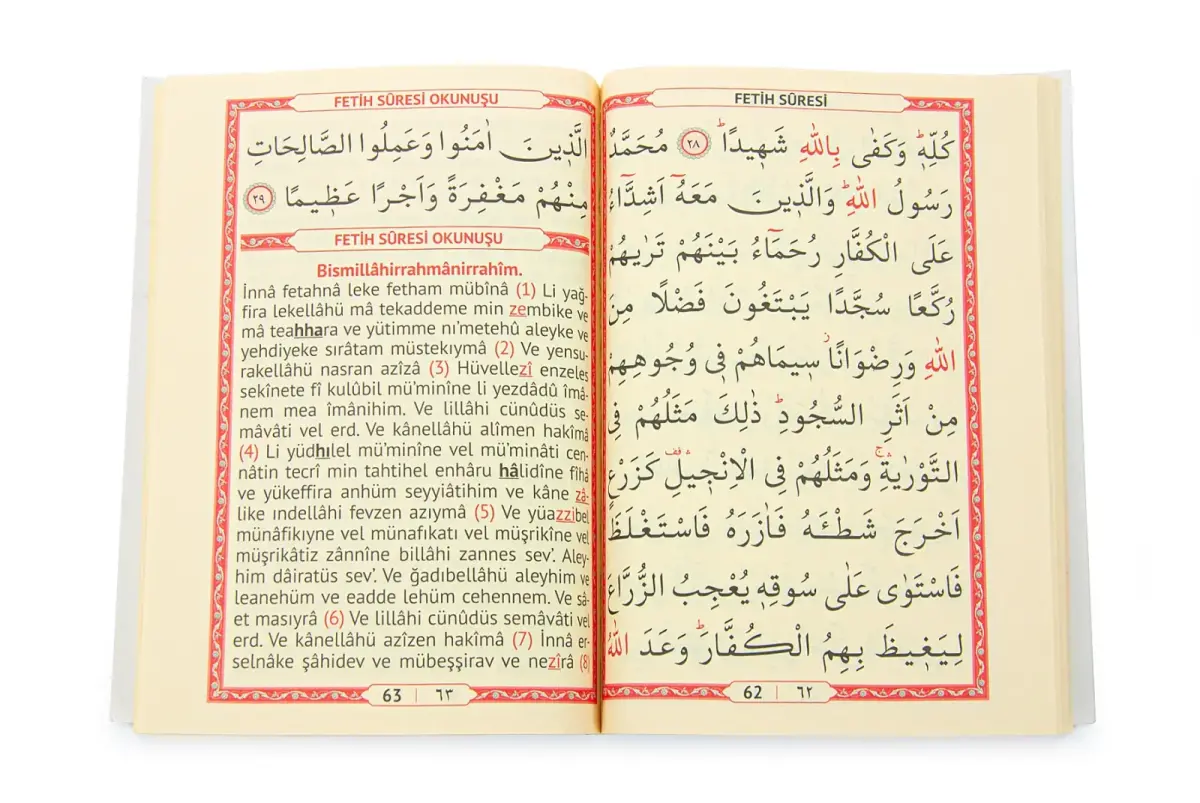 FETİH SÛRESİ
كُلِّه۪ۜ وَكَفٰى بِاللّٰهِ شَه۪يدًاۜ ﴿٢٨﴾ مُحَمَّدٌ
رَسُولُ اللّٰهِۜ وَالَّذ۪ينَ مَعَهُٓ اَشِدَّٓاءُ
عَلَى الْكُفَّارِ رُحَمَٓاءُ بَيْنَهُمْ تَرٰيهُمْ
رُكَّعًا سُجَّدًا يَبْتَغُونَ فَضْلًا مِنَ
اللّٰهِ وَرِضْوَانًاۘ س۪يمَاهُمْ ف۪ي وُجُوهِهِمْ
مِنْ اَثَرِ السُّجُودِۜ ذٰلِكَ مَثَلُهُمْ فِي
التَّوْرٰيةِۚۛ وَمَثَلُهُمْ فِي الْاِنْج۪يلِ۠ۛ كَزَرْعٍ
اَخْرَجَ شَطْـَٔهُ فَاٰزَرَهُ فَاسْتَغْلَظَ
فَاسْتَوٰى عَلٰى سُوقِه۪ يُعْجِبُ الزُّرَّاعَ
لِيَغ۪يظَ بِهِمُ الْكُفَّارَۜ وَعَدَ اللّٰهُ
62 | ٦٢
FETİH SÛRESİ OKUNUŞU
الَّذ۪ينَ اٰمَنُوا وَعَمِلُوا الصَّالِحَاتِ
مِنْهُمْ مَغْفِرَةً وَاَجْرًا عَظ۪يمًا ﴿٢٩﴾
FETİH SÛRESİ OKUNUŞU
Bismillâhirrahmânirrahîm.
İnnâ fetahnâ leke fetham mübînâ (1) Li yağ-
fira lekellâhü mâ tekaddeme min zembike ve
mâ teahhara ve yütimme nı’metehû aleyke ve
yehdiyeke sırâtam müstekıymâ (2) Ve yensu-
rakellâhü nasran azîzâ (3) Hüvellezî enzeles
sekînete fî kulûbil mü’minîne li yezdâdû îmâ-
nem mea îmânihim. Ve lillâhi cünûdüs se-
mâvâti vel erd. Ve kânellâhü alîmen hakîmâ
(4) Li yüdhılel mü’minîne vel mü’minâti cen-
nâtin tecrî min tahtihel enhâru hâlidîne fîhâ
ve yükeffira anhüm seyyiâtihim ve kâne zâ-
like ındellâhi fevzen azıymâ (5) Ve yüazzibel
münâfikıyne vel münafıkati vel müşrikîne vel
müşrikâtiz zânnîne billâhi zannes sev’. Aley-
him dâiratüs sev’. Ve ğadıbellâhü aleyhim ve
leanehüm ve eadde lehüm cehennem. Ve sâ-
et masıyrâ (6) Ve lillâhi cünûdüs semâvâti vel
erd. Ve kânellâhü azîzen hakîmâ (7) İnnâ er-
selnâke şâhidev ve mübeşşirav ve nezîrâ (8)
63 | ٦٣